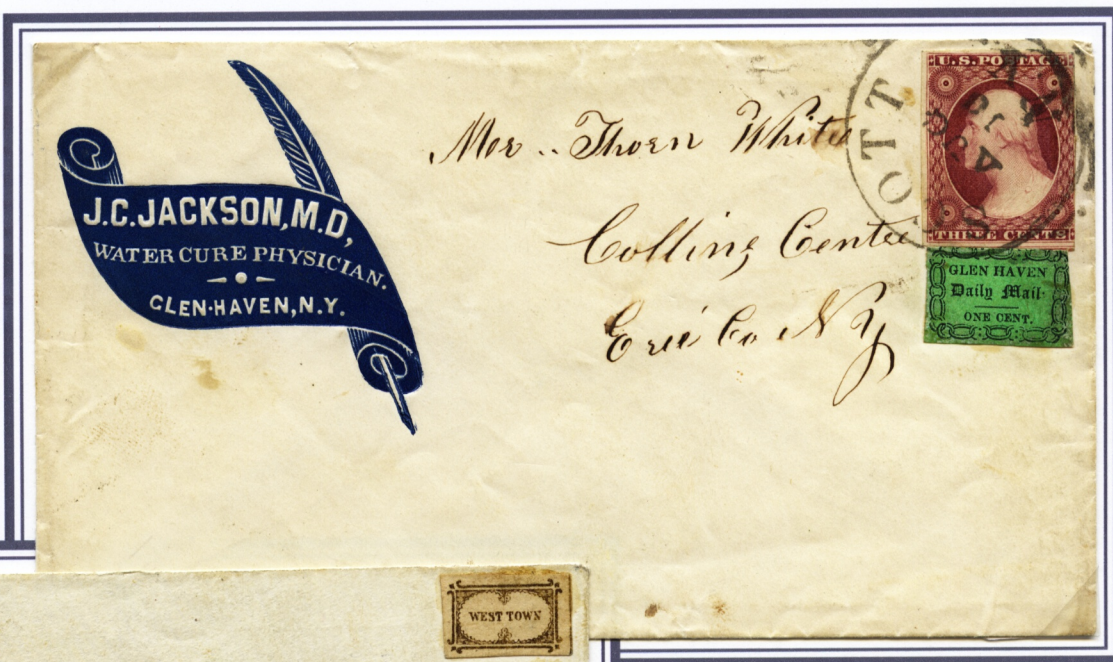 J.C.JACKSON,M.D,
WATER CURE PHYSICIAN.
GLEN-HAVEN,N.Y.
Mrs .. Thorn White
Collins Center
Erie Co NY
U.S.POSTAGE
THREE CENTS
OTT
GLEN HAVEN
Daily Mail·
ONE CENT.
WEST TOWN